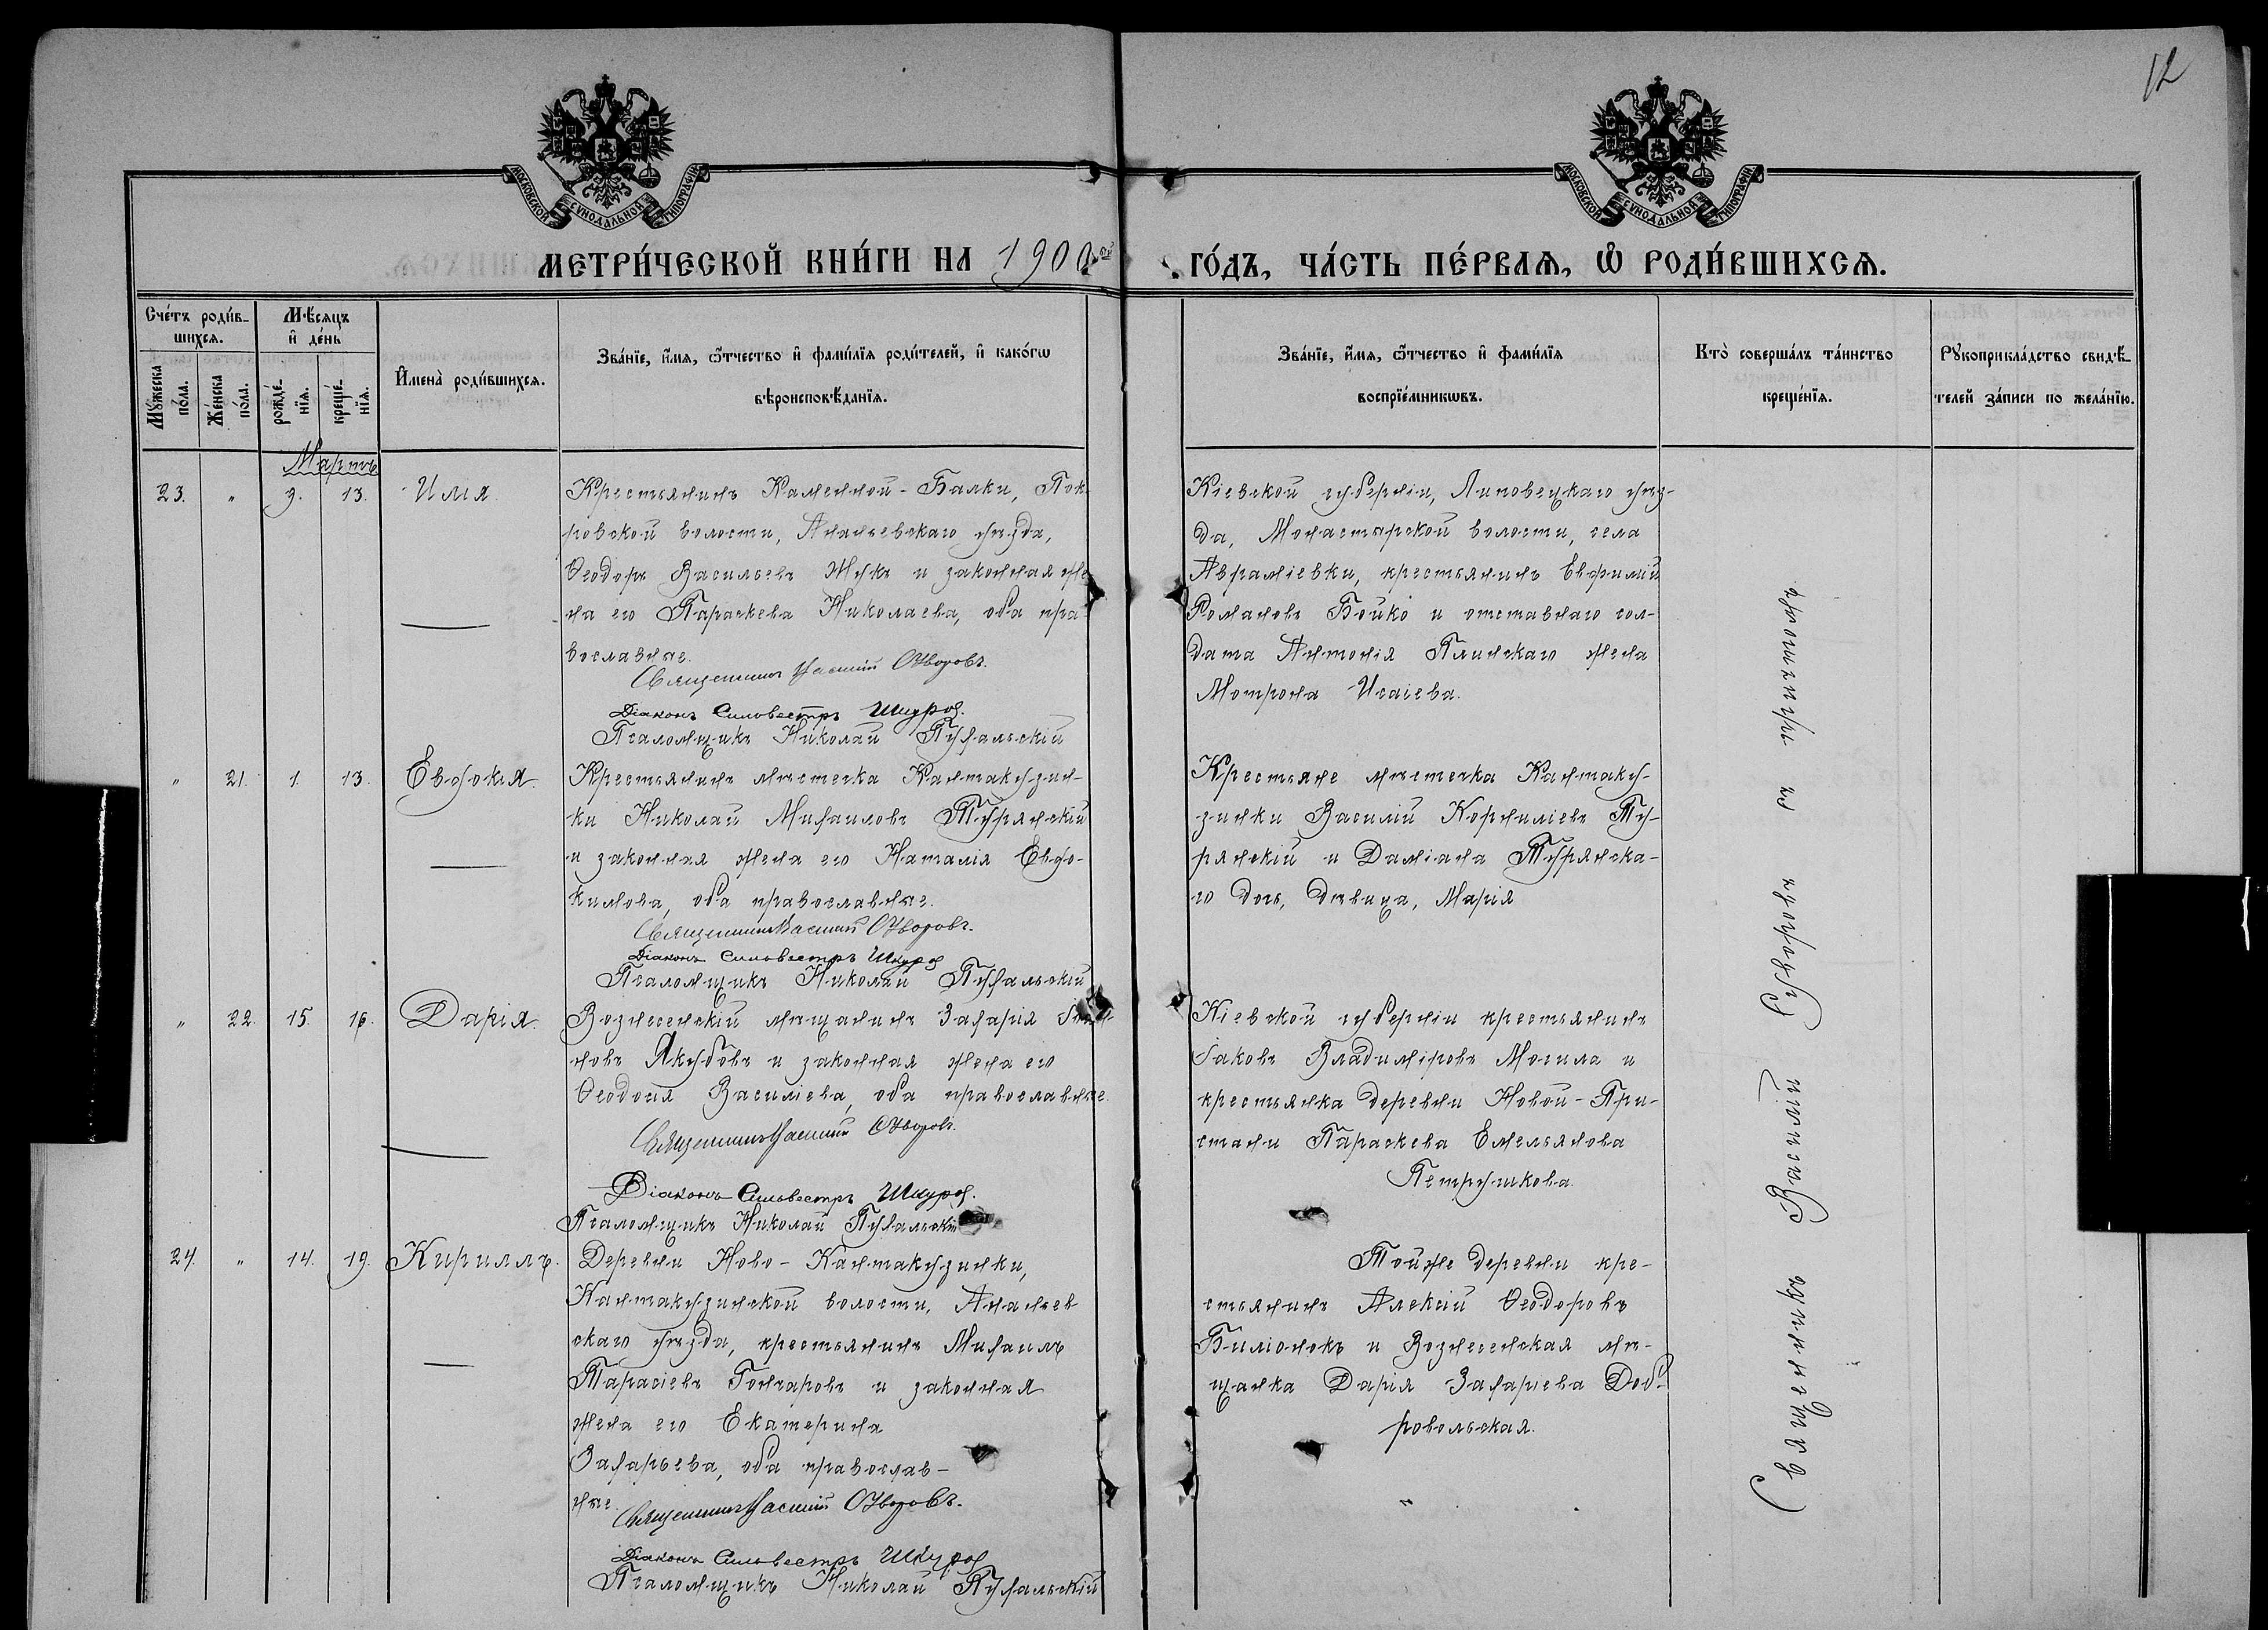 12
МОСКОВСКОЙ СѴНОДАЛЬНОЙ ТИПОГРАФІИ
МОСКОВСКОЙ СѴНОДАЛЬНОЙ ТИПОГРАФІИ
МЕТРИ́ЧЕСКОЙ КНИ́ГИ НА 1900ый ГО́ДЪ, ЧА́СТЬ ПЕ́РВАѦ, Ѡ РОДИ́ВШИХСѦ.
Сче́тъ роди́в-
шихсѧ.
Мꙋ́жеска
по́ла.
Же́нска
по́ла.
Мѣ́сѧцъ
и҆ де́нь
рожде́-
нїѧ.
креще́-
нїѧ.
И҆мена̀ роди́вшихсѧ.
Зва́нїе, и҆́мѧ, ѻ҆́тчество и҆ фами́лїѧ роди́телей, и҆ како́гѡ
вѣроисповѣ́данїѧ.
Зва́нїе, и҆́мѧ, ѻ҆́тчество и҆ фами́лїѧ
воспрїе́мникѡвъ.
Кто̀ соверша́лъ та́инство
креще́нїѧ.
Рꙋкоприкла́дство свидѣ́-
телей за́писи по жела́нїю.
Мартъ
23. " 9. 13. Илія.
Крестьянинъ Каменной-Балки, Пок-
ровской волости, Ананьевскаго уѣзда,
Ѳеодоръ Васильевъ Жукъ и законная же-
на его Параскева Николаева, оба пра-
вославные.
Священникъ Василій Озворовъ.
Діаконъ Сильвестръ
Псаломщикъ Николай Пухальскій
Кіевской губерніи, Липовецкаго уѣз-
да, Монастырской волости, села
Авраміевки, крестьянинъ Евфимій
Романовъ Бойко и отставнаго сол-
дата Антонія Глинскаго жена
Мотрона Исаіева.
" 21. 1. 13. Евдокія.
Крестьянинъ мѣстечка Кантакузин-
ки Николай Михаиловъ Турянскій
и законная жена его Наталія Евдо-
кимова, оба православные.
Священникъ Василій Озворовъ.
Діаконъ Сильвестръ
Псаломщикъ Николай Пухальскій
Крестьяне мѣстечка Кантаку-
зинки Василій Корниліевъ Ту-
рянскій и Даміана Турянска-
го дочь, дѣвица, Марія
" 22. 15. 16. Дарія.
Вознесенскій мѣщанинъ Захарія
новъ Якубовъ и законная жена его
Ѳеодосія Василіева, оба православные.
Священникъ Василій Озворовъ.
Діаконъ Сильвестръ
Псаломщикъ Николай Пухальскій
Кіевской губерніи крестьянинъ
Іаковъ Владиміровъ Могила и
крестьянка деревни Новой-При-
стани Параскева Емельянова
Петрушкова.
24. " 14. 19. Кириллъ.
Деревни Ново-Кантакузинки,
Кантакузинской волости, Ананьев-
скаго уѣзда, крестьянинъ Михаилъ
Тарасіевъ Гончаровъ и законная
жена его Екатерина
Захарьева, оба православ-
ные.
Священникъ Василій Озворовъ.
Діаконъ Сильвестръ
Псаломщикъ Николай Пухальскій
Тойже деревни кре-
стьянинъ Алексій Ѳеодоровъ
БилІонокъ и Вознесенская мѣ-
щанка Дарія Захаріева Доб-
ровольская.
Священникъ Василій Озворовъ съ причтомъ